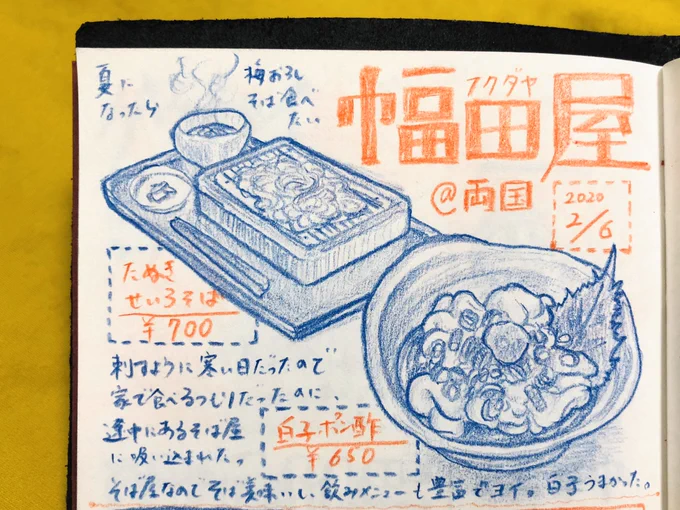 夏に
なったら
梅おろし
そば食べ
たい
フクダヤ
幅田屋
@両国
2020
2/6
たぬき
せいろそば
¥700
刺すように寒い日だったので
家で食べるつもりだったのに、
途中にあるそば屋
に吸い込まれた。
白子ポン酢
¥650
そば屋なのでそば美味いし、飲みメニューも豊富でヨイ。白子うまかった。